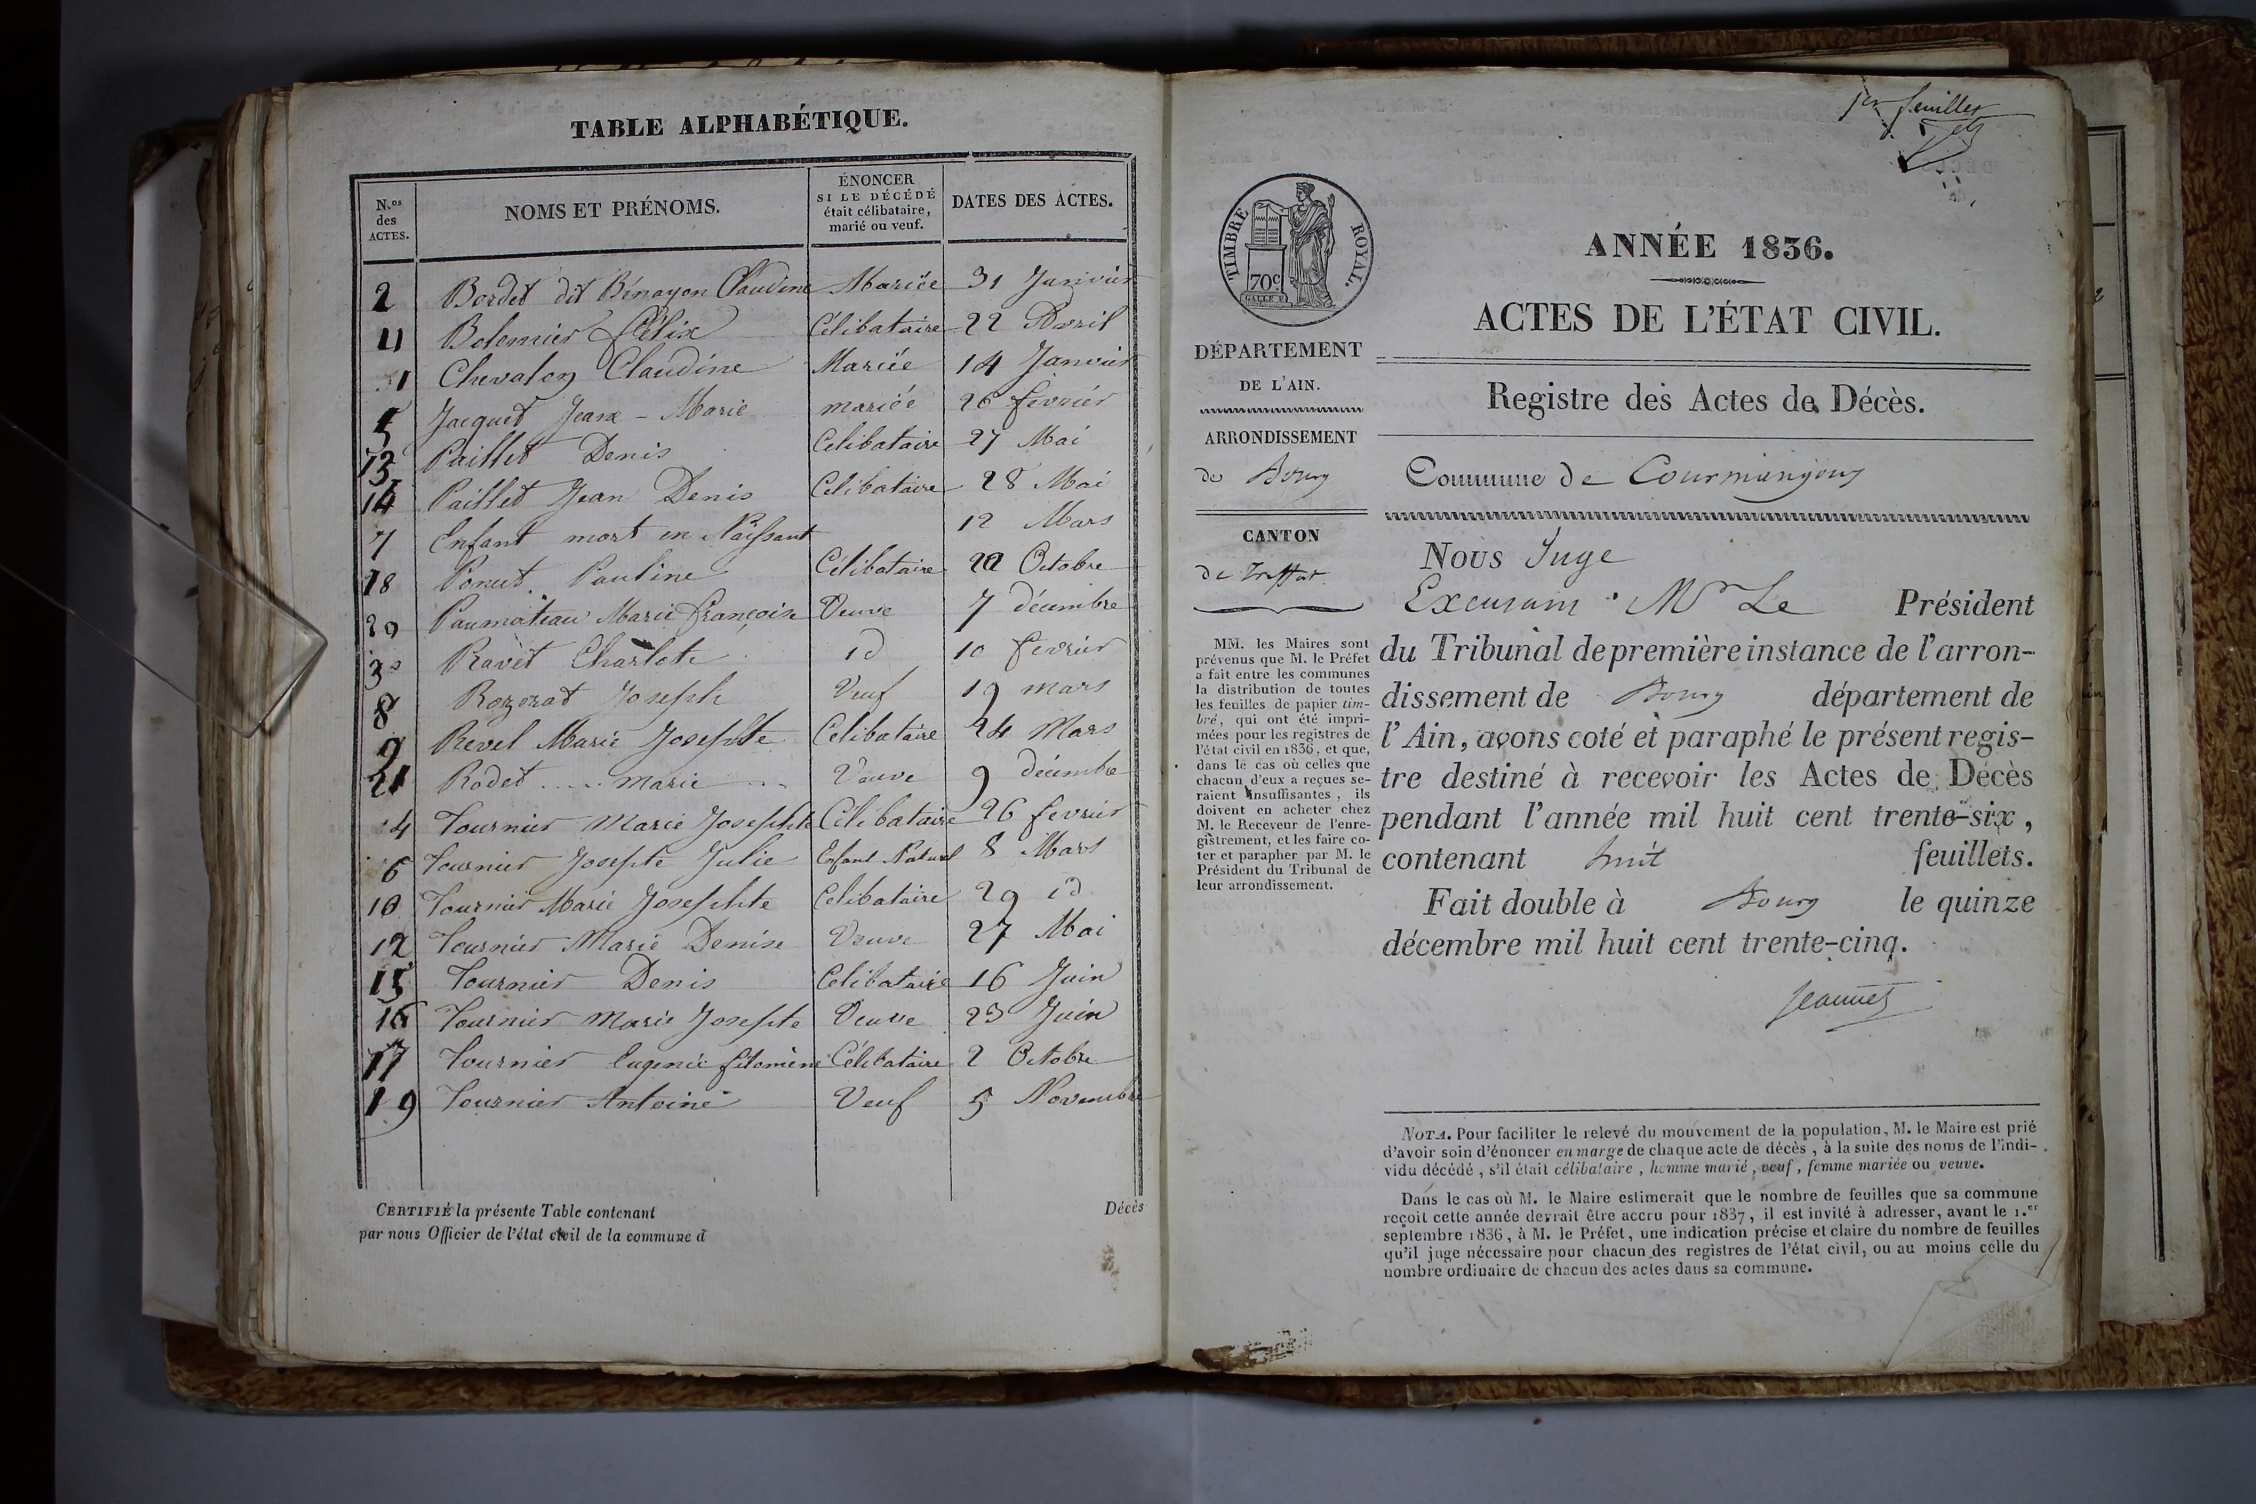 TABLE ALPHABÉTIQUE.
N.os des ACTES.
NOMS ET PRÉNOMS.
ÉNONCER SI LE DÉCÉDÉ était célibataire, marié ou veuf.
DATES DES ACTES.
2 Bordet dit Bénayon Claudine Mariée 31 Janvier
11 Bolomier Félix Célibataire 22 Avril
1 Chevalon Claudine Mariée 14 Janvier
5 Jacquet Jeanne-Marie mariée 26 fevrier
13 Paillet Denis Celibataire 27 Mai
14 Paillet Jean Denis Celibataire 28 Mai
7 Enfant mort en Naissant 12 Mars
18 Ponut Pauline Célibataire 22 Octobre
20 Paumateau Marie Françoise Veuve 7 décembre
3 Ravet Charlote id 10 fevrier
8 Rozerat Joseph Veuf 19 mars
9 Revel Marie Josephte Celibataire 24 Mars
21 Rodet .... marie Veuve 9 décembre
4 Tournier Marie Josephte Célibataire 26 fevrier
6 Tournier Josepte Julie Enfant Naturel 8 Mars
10 Tournier Marie Josephte Celibataire 29 id
12 Tournier Marie Denise Veuve 27 Mai
15 Tournier Denis Celibataire 16 Juin
16 Tournier Marie Josepte Veuve 23 Juin
17 Tournier Eugenie filomene Célibataire 2 Octobre
19 Tournier Antoine Veuf 5 Novembre
CERTIFIÉ la présente Table contenant Décès
par nous Officier de l'état civil de la commune d
1er feuillet
TIMBRE ROYAL.
70c
DÉPARTEMENT
DE L'AIN.
ARRONDISSEMENT
de Bourg
CANTON
de Treffort
MM. les Maires sont
prévenus que M. le Préfet
a fait entre les communes
la distribution de toutes
les feuilles de papier tim-
bré, qui ont été impri-
mées pour les registres de
l'état civil en 1836, et que,
dans le cas où celles que
chacun d'eux a reçues se-
raient insuffisantes, ils
doivent en acheter chez
M. le Receveur de l'enre-
gistrement, et les faire co-
ter et parapher par M. le
Président du Tribunal de
leur arrondissement.
ANNÉE 1836.
ACTES DE L'ÉTAT CIVIL.
Registre des Actes de Décès.
Commune de Courmangoux
Nous Juge
Excusant Mr Le Président
du Tribunal de première instance de l'arron-
dissement de Bourg département de
l'Ain, avons coté et paraphé le présent regis-
tre destiné à recevoir les Actes de Décès
pendant l'année mil huit cent trente-six,
contenant huit feuillets.
Fait double à Bourg le quinze
décembre mil huit cent trente-cinq.
Jeannet
NOTA. Pour faciliter le relevé du mouvement de la population, M. le Maire est prié
d'avoir soin d'énoncer en marge de chaque acte de décès, à la suite des noms de l'indi-
vidu décédé, s'il était célibataire, homme marié, veuf, femme mariée ou veuve.
Dans le cas où M. le Maire estimerait que le nombre de feuilles que sa commune
reçoit cette année devrait être accru pour 1837, il est invité à adresser, avant le 1.er
septembre 1836, à M. le Préfet, une indication précise et claire du nombre de feuilles
qu'il juge nécessaire pour chacun des registres de l'état civil, ou au moins celle du
nombre ordinaire de chacun des actes dans sa commune.